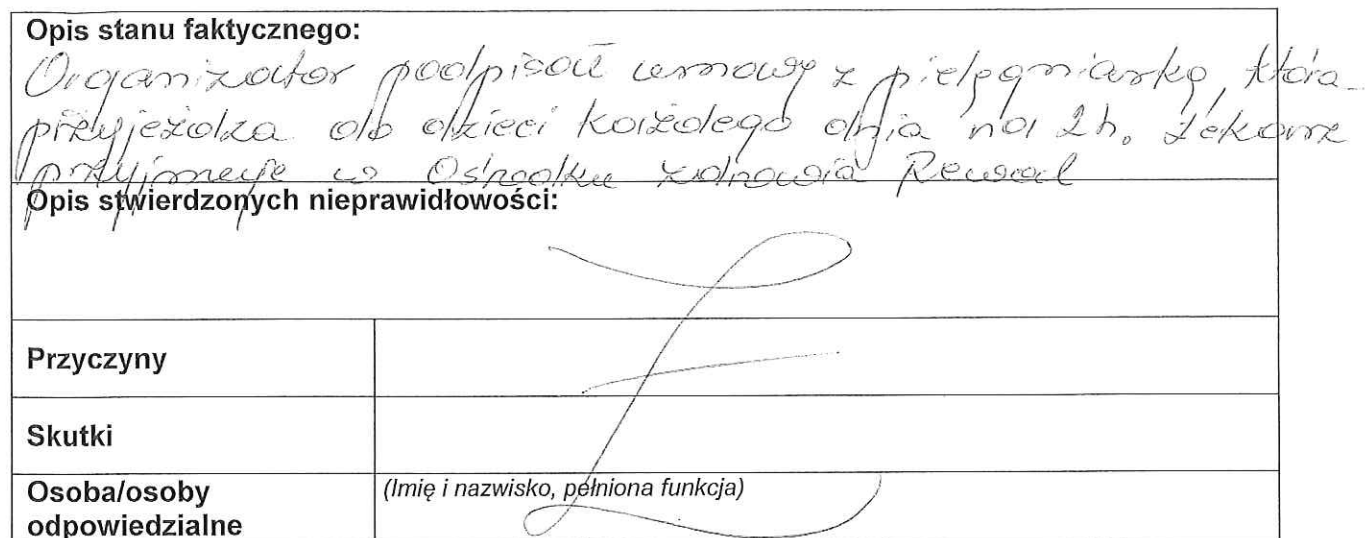 Opis stanu faktycznego:
Organizator podpisał umowę z pielęgniarką, która
przyjeżdża do dzieci każdego dnia na 2h. Lekarz
przyjmuje w Ośrodku zdrowia Rewal
Opis stwierdzonych nieprawidłowości:
Przyczyny
Skutki
Osoba/osoby (Imię i nazwisko, pełniona funkcja)
odpowiedzialne